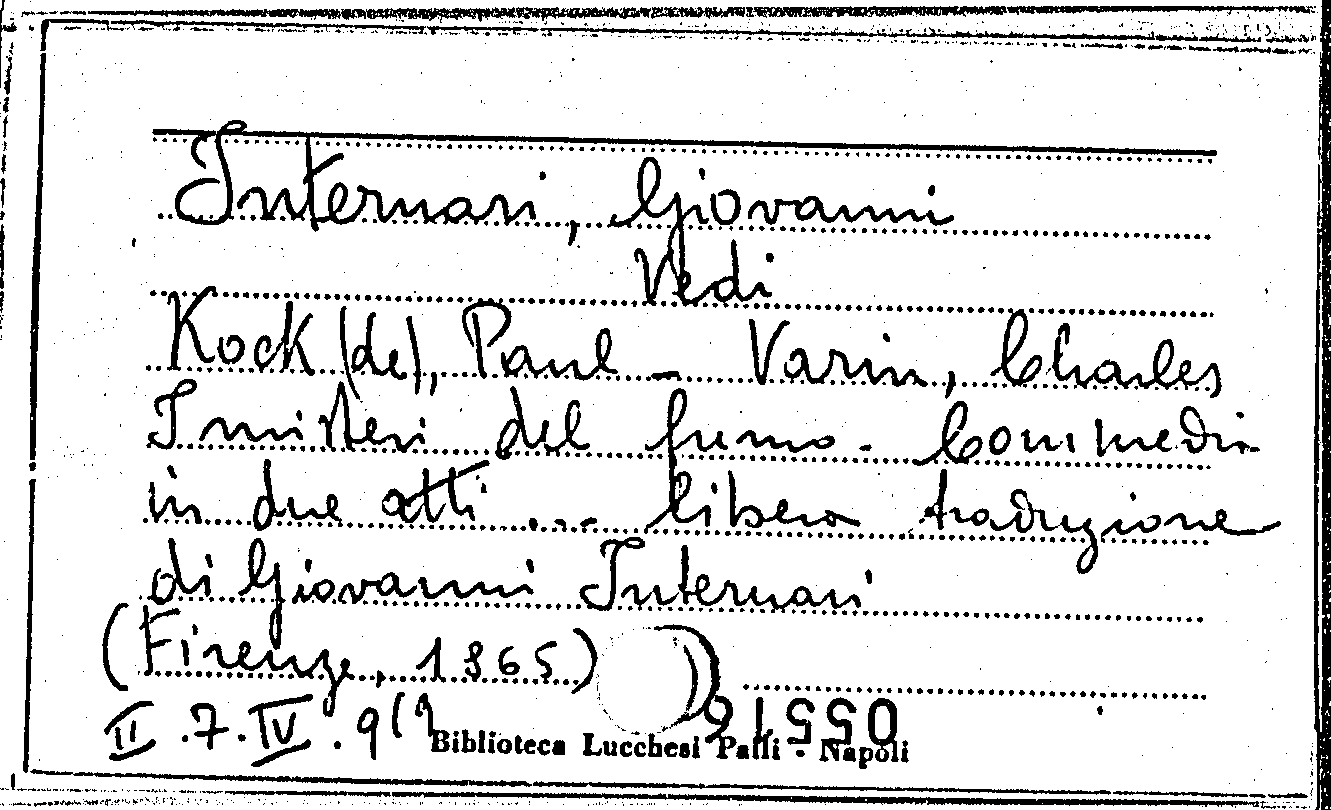 Internari, Giovanni
Vedi
Kock (de), Paul - Varin, Charles
I misteri del fumo. Commedia
in due atti ... libera traduzione
di Giovanni Internari
(Firenze, 1865)
II.7.IV.9(
Biblioteca Lucchesi Palli - Napoli
055126